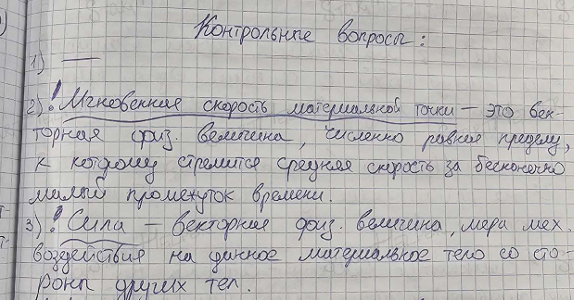 Контрольные вопросы:
1) —
2)! Мгновенная скорость материальной точки — это век-
торная физ. величина, численно равная пределу,
к которому стремится средняя скорость за бесконечно
малый промежуток времени.
3)! Сила — векторная физ. величина, мера мех.
воздействия на данное материальное тело со сто-
роны других тел.